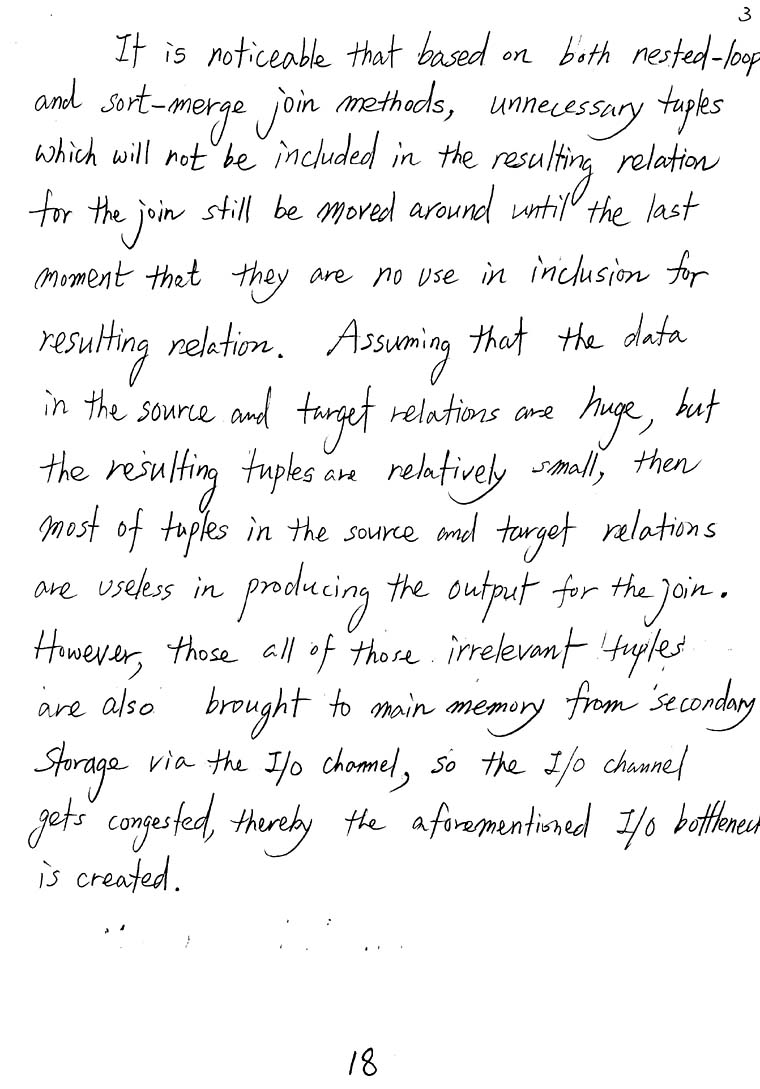 3
It is noticeable that based on both nested-loop
and sort-merge join methods, unnecessary tuples
which will not be included in the resulting relation
for the join still be moved around until the last
moment that they are no use in inclusion for
resulting relation. Assuming that the data
in the source and target relations are huge, but
the resulting tuples are relatively small, then
most of tuples in the source and target relations
are useless in producing the output for the join.
However, those all of those irrelevant tuples
are also brought to main memory from secondary
storage via the I/O channel, so the I/O channel
gets congested, thereby the aforementioned I/O bottleneck
is created.
18